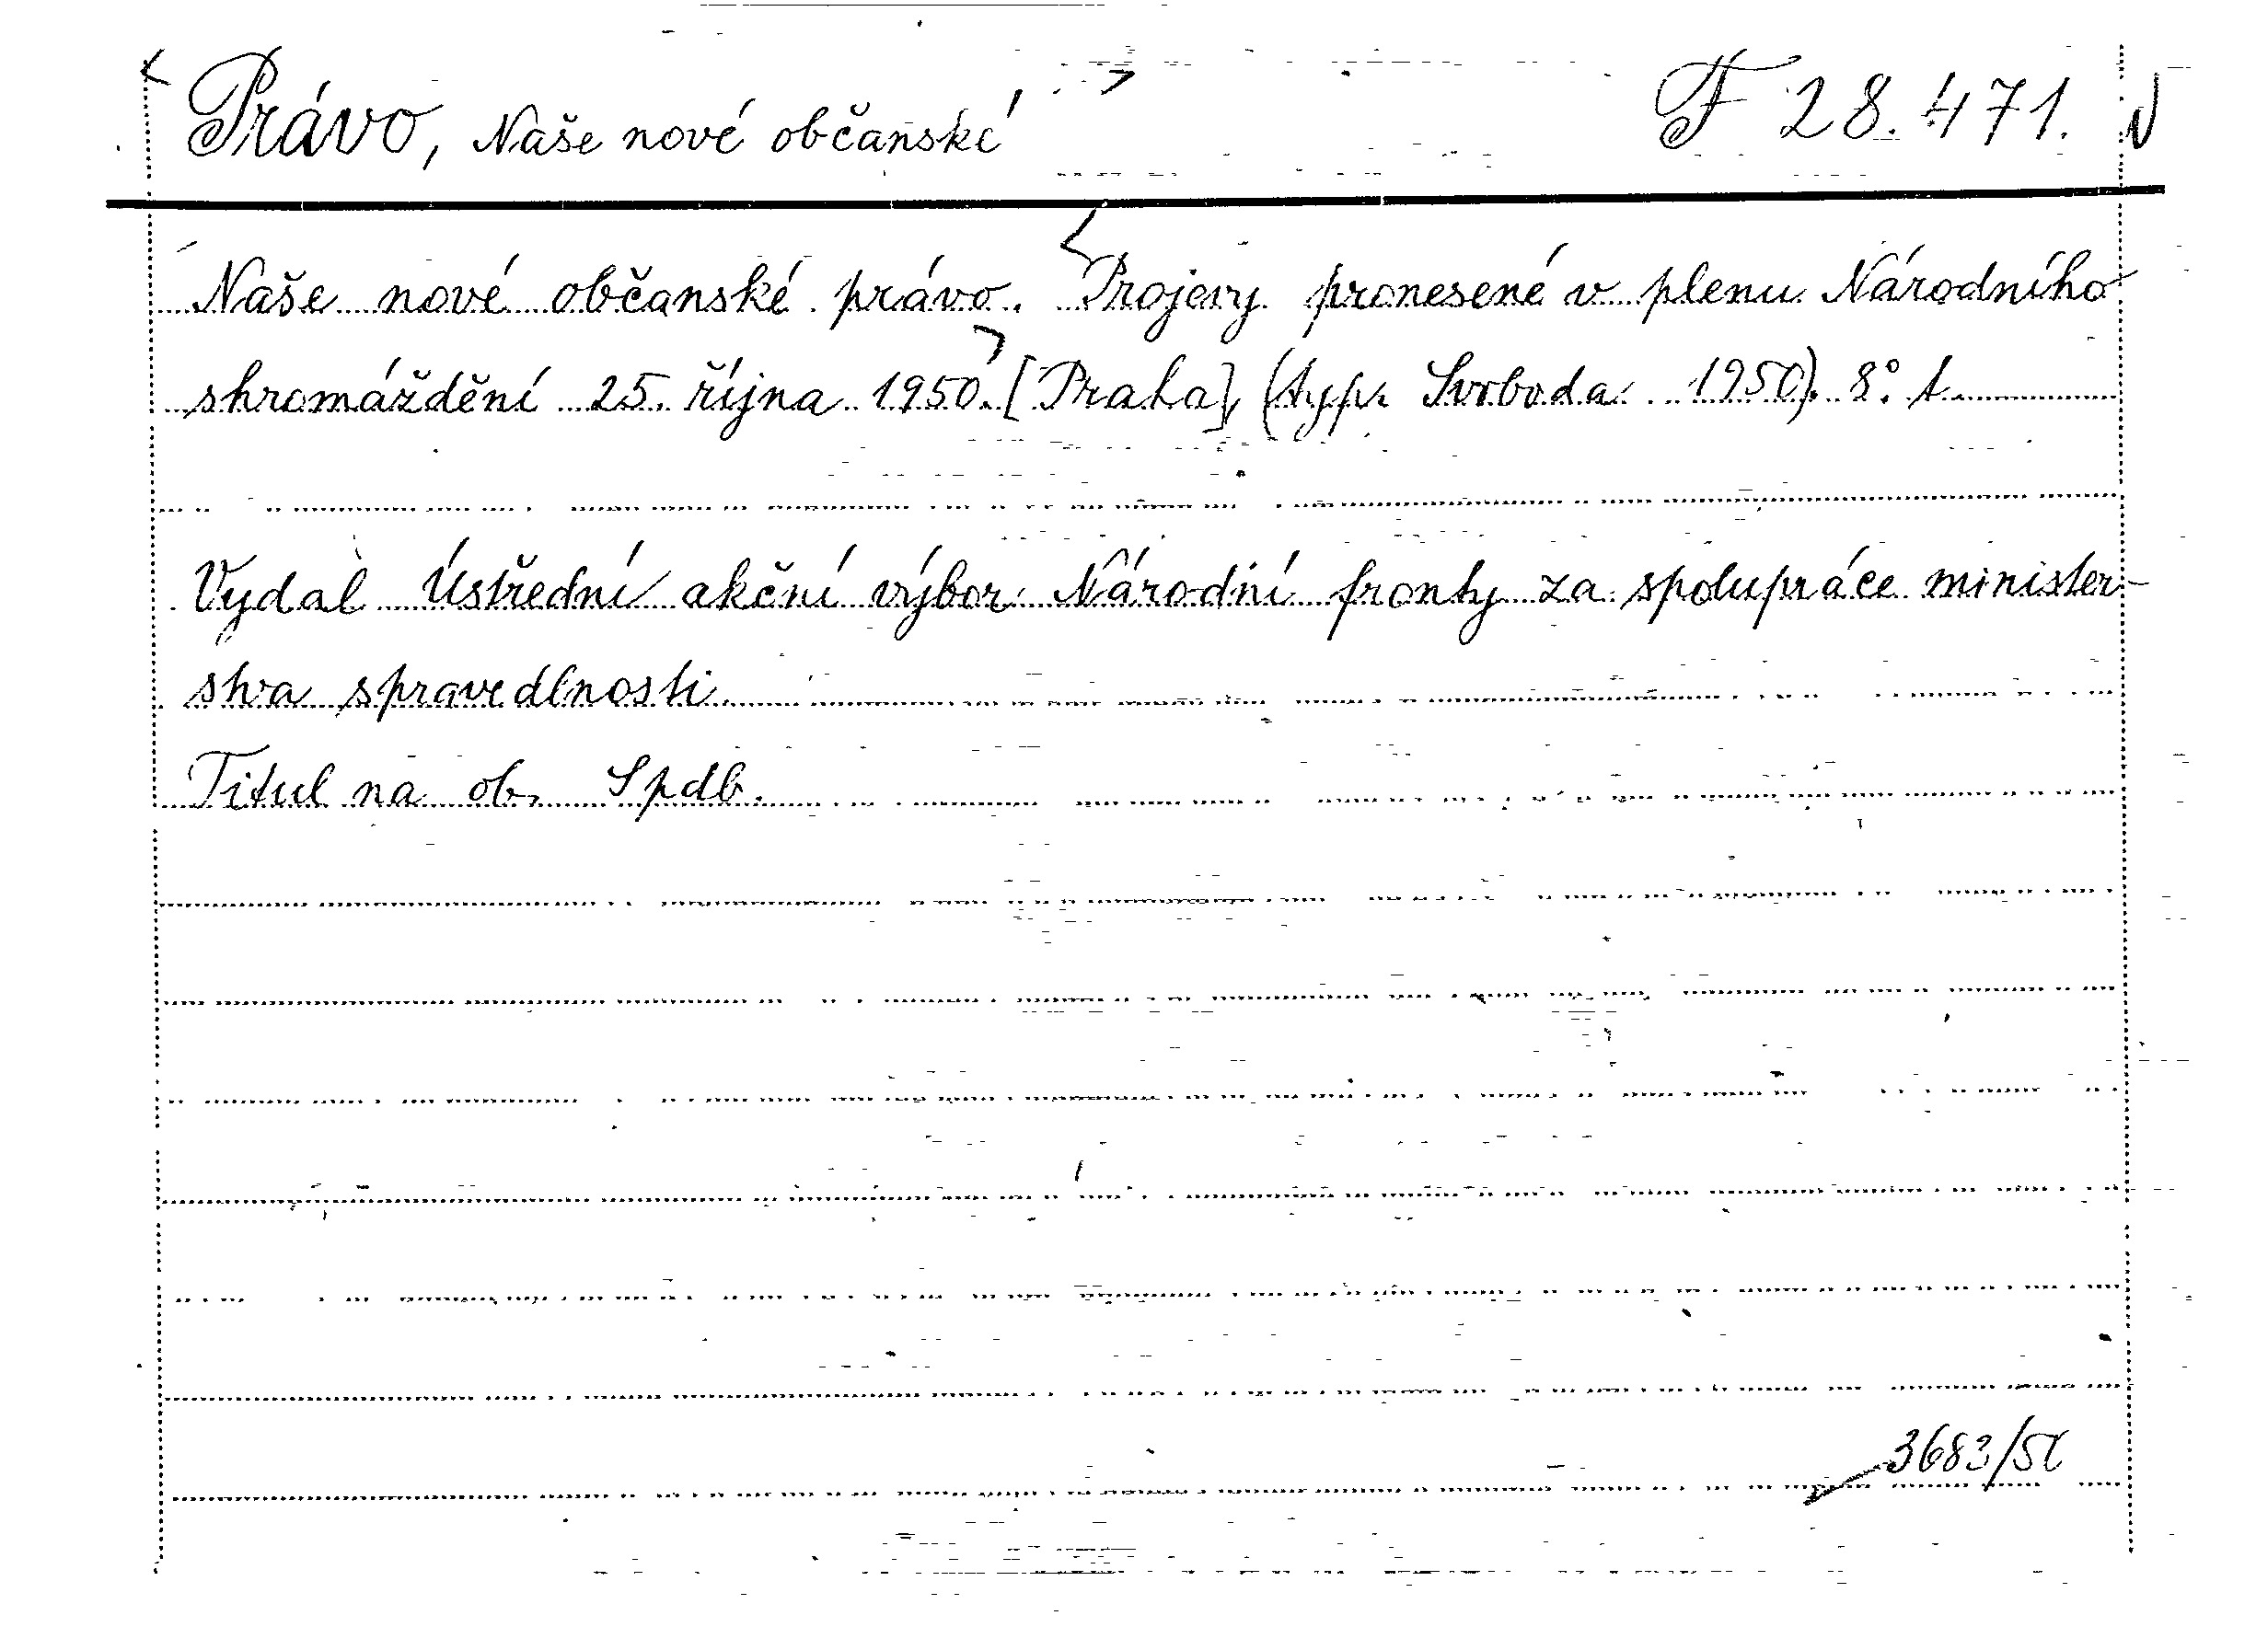 Právo, Naše nové občanské F 28.471.
Naše nové občanské právo. Projevy pronesené v plenu Národního
shromáždění 25. října 1950. [Praha], (typ. Svoboda 1950). 8° t.
Vydal Ústřední akční výbor Národní fronty za spolupráce minister-
stva spravedlnosti.
Titul na ob. Spdb.
3683/51